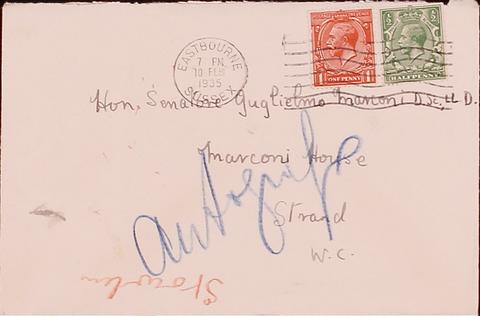 EASTBOURNE
7 PM
10 FEB
1935
SUSSEX
POSTAGE REVENUE
ONE PENNY
HALFPENNY
Hon. Senatore Guglielmo Marconi D.Sc., LL.D.
Marconi House
Strand
W.C.
Autografo